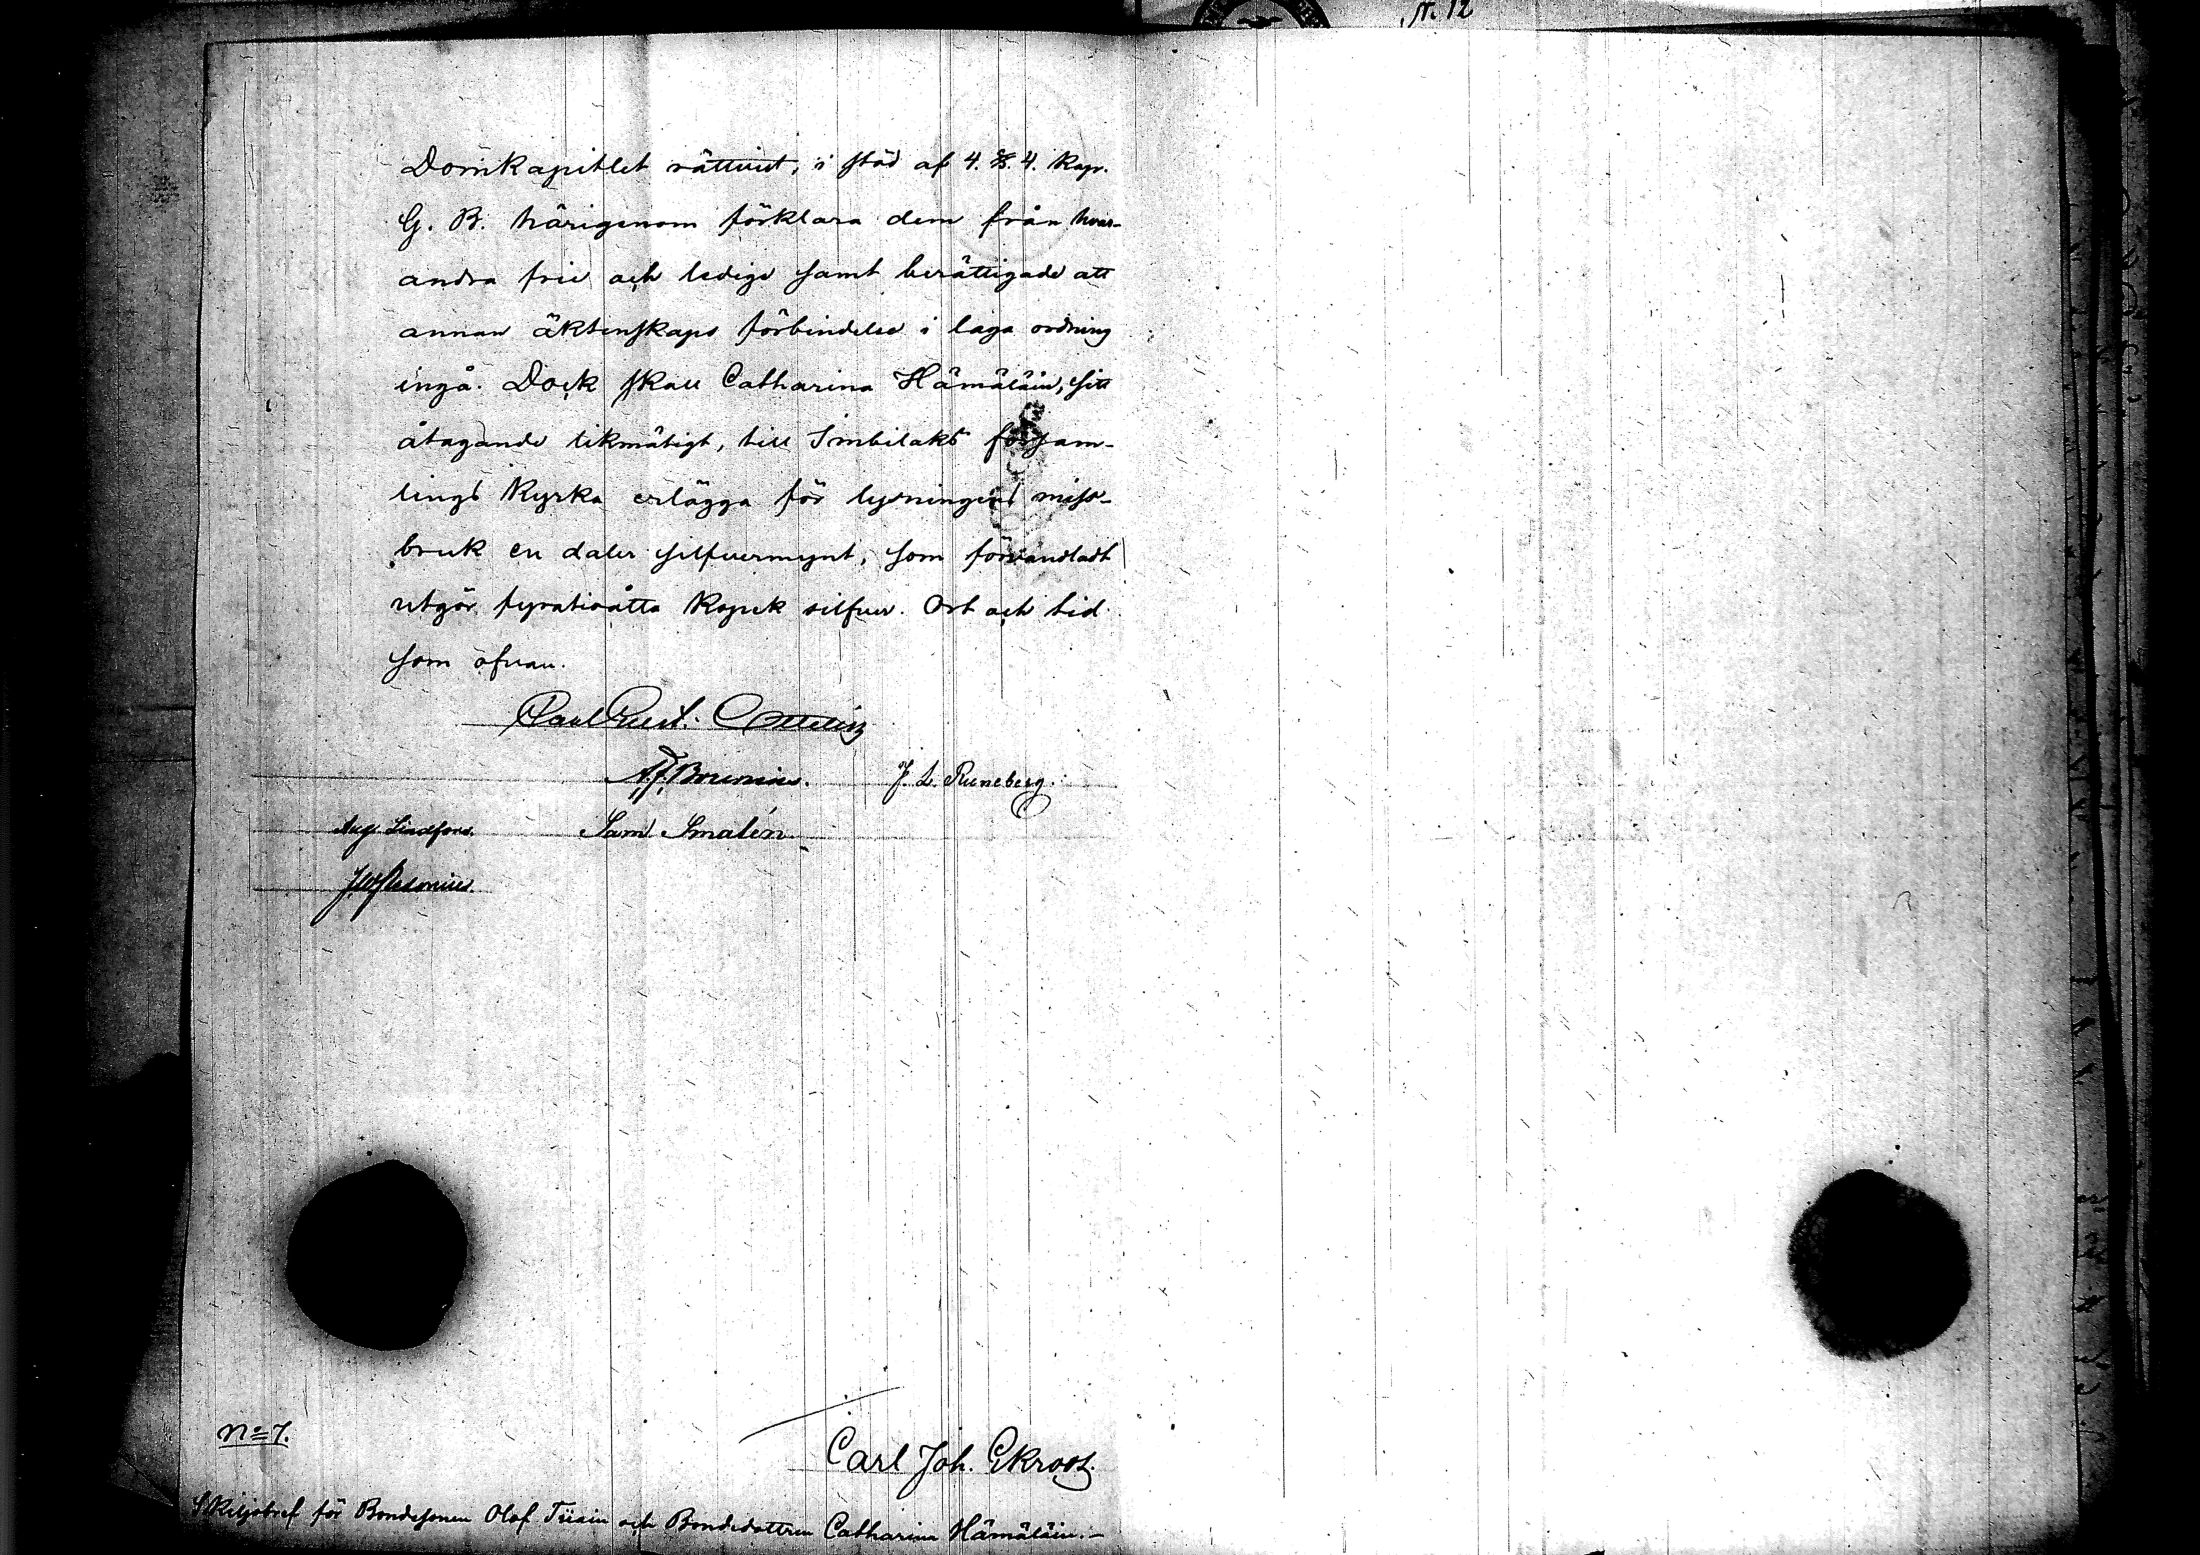 N. 12
Domkapitlet rättvist, i stöd af 4. §. 4. Kap.
G. B. härigenom förklara dem från hvar-
andra frie och ledige samt berättigade att
annan äktenskaps förbindelse i laga ordning
ingå. Dock skall Catharina Hämäläin, sitt
åtagande likmätigt, till Imbilaks församm-
lings Kyrka erlägga för lysningens miss-
bruk en daler silfvermynt, som förvandladt
utgör fyratioåtta Kopek silfver. Ort och tid
som ofvan.
Carl Gust. Ottelin
J. L. Runeberg.
Aug. Lindfors. Sam. Smalén
No 7.
Carl Joh. Ekroos.
Skiljobref för Bondesonen Olof Tiiain och Bondedottren Catharina Hämäläin.-